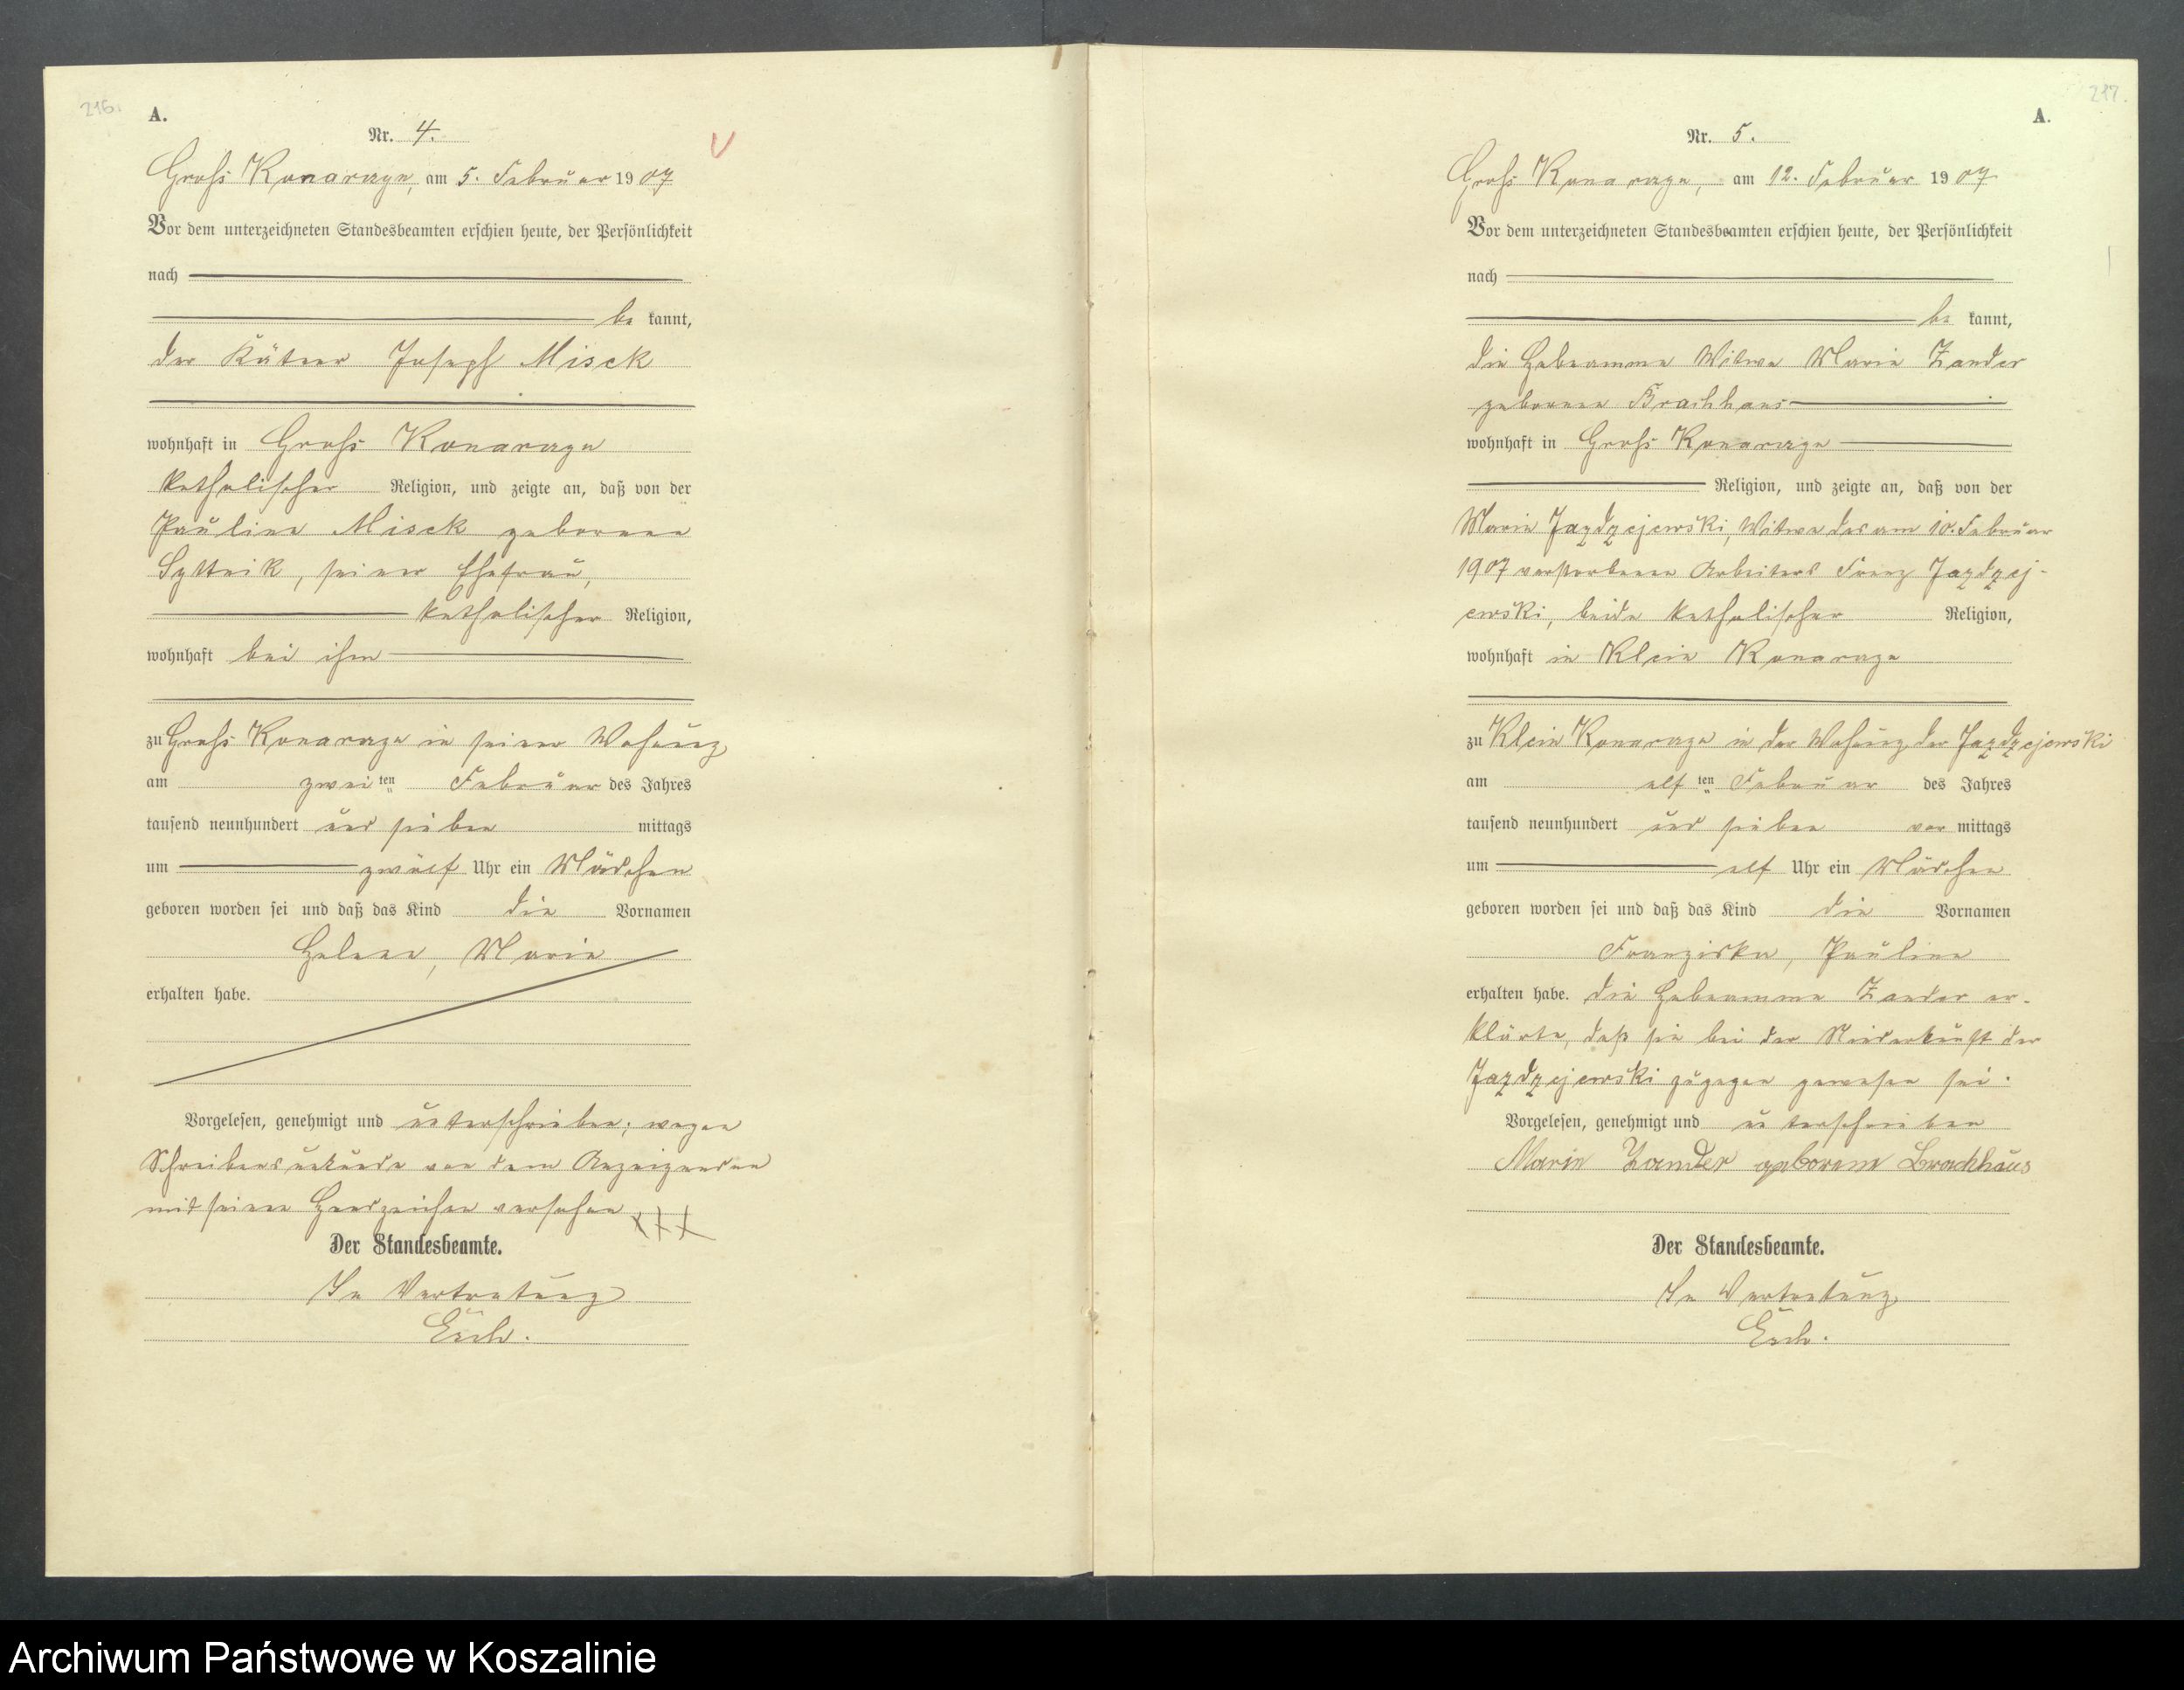 216.
A.
Nr. 4.
Groß Konarzyn, am 5. Februar 1907
Vor dem unterzeichneten Standesbeamten erschien heute, der Persönlichkeit
nach
be kannt,
der Kätner Joseph Misck
wohnhaft in Groß Konarzyn
katholischer Religion, und zeigte an, daß von der
Pauline Misck geborene
seiner Ehefrau,
katholischer Religion,
wohnhaft bei ihm
zu Groß Konarzyn in seiner Wohnung
am zwei ten Februar des Jahres
tausend neunhundert und sieben mittags
um zwölf Uhr ein Mädchen
geboren worden sei und daß das Kind die Vornamen
Helene, Marie
erhalten habe.
Vorgelesen, genehmigt und unterschrieben; wegen
Schreibensunkunde von dem Anzeigenden
mit seinem Handzeichen versehen
+++
Der Standesbeamte.
In Vertretung
217.
A.
Nr. 5.
Groß Konarzyn, am 12. Februar 1907
Vor dem unterzeichneten Standesbeamten erschien heute, der Persönlichkeit
nach
be kannt,
die Hebeamme Witwe Marie Zander
geborene Brachhaus
wohnhaft in Groß Konarzyn
Religion, und zeigte an, daß von der
Marie Jazdzejewski, Witwe des am 10. Februar
1907 verstorbenen Arbeiters Franz Jazdzej-
ewski, beide katholischer Religion,
wohnhaft in Klein Konarzyn
zu Klein Konarzyn in der Wohnung der Jazdzejewski
am elf ten Februar des Jahres
tausend neunhundert und sieben vor mittags
um elf Uhr ein Mädchen
geboren worden sei und daß das Kind die Vornamen
Franziska, Pauline
erhalten habe. Die Hebeamme Zander er-
klärte, daß sie bei der Niederkunft der
Jazdzejewski zugegen gewesen sei.
Vorgelesen, genehmigt und unterschrieben
Marie Zander geborene Brachhaus
Der Standesbeamte.
In Vertretung
Archiwum Państwowe w Koszalinie